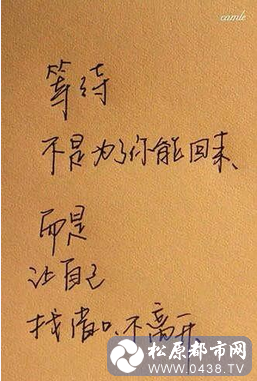 camile
等待
不是为了你能回来、
而是
让自己
找借口、不离开。
松原都市网
www.0438.TV